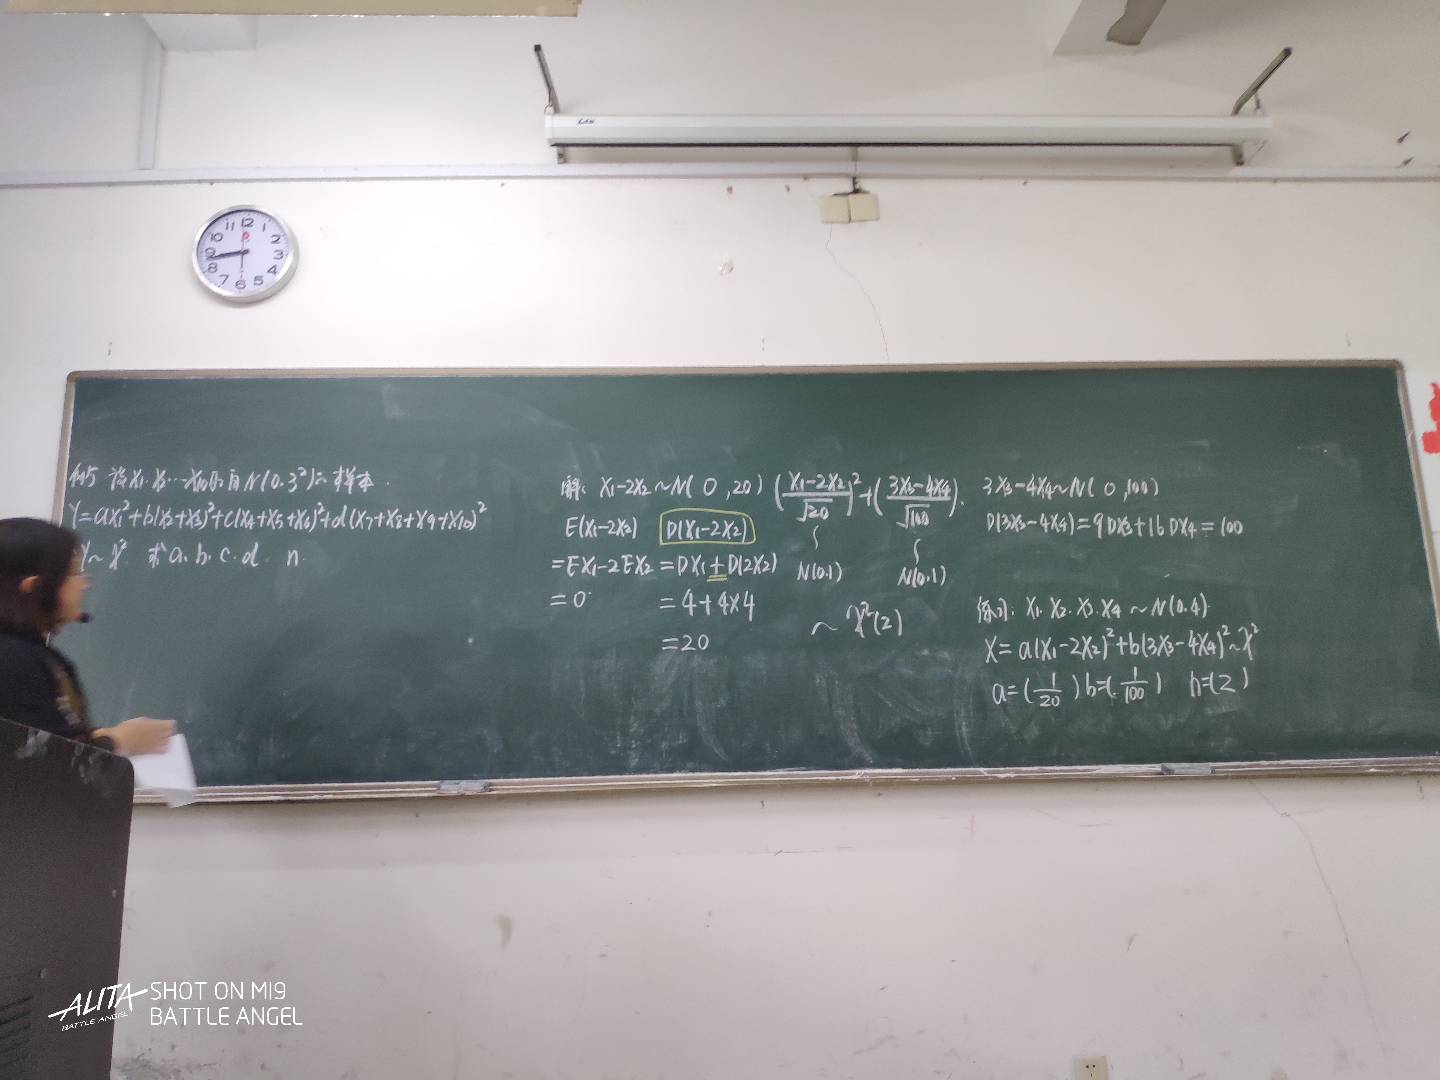 例5 设X₁.X₂…X₁₀取自N(0.3²)的样本.
Y=aX₁²+b(X₂+X₃)²+c(X₄+X₅+X₆)²+d(X₇+X₈+X₉+X₁₀)²
Y~χ². 求a.b.c.d. n.
解: X₁-2X₂~N(0,20)
E(X₁-2X₂)
=EX₁-2EX₂
=0
D(X₁-2X₂)
=DX₁+D(2X₂)
=4+4×4
=20
(X₁-2X₂/√20)²+(3X₃-4X₄/√100).
N(0.1) N(0.1)
~χ²(2)
3X₃-4X₄~N(0,100)
D(3X₃-4X₄)=9DX₃+16DX₄=100
练习: X₁.X₂.X₃.X₄~N(0.4).
X=a(X₁-2X₂)²+b(3X₃-4X₄)²~χ²
a=(1/20) b=(1/100) n=(2)
12 1 2 3 4 5 6 7 8 9 10 11
ALITA
BATTLE ANGEL
SHOT ON MI9
BATTLE ANGEL